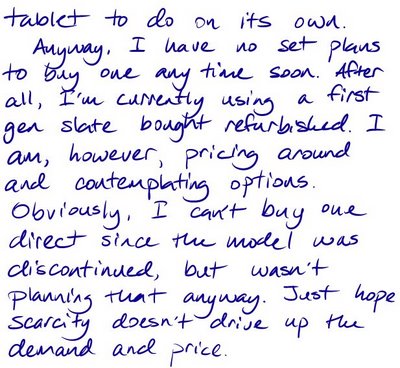 tablet to do on its own.
Anyway, I have no set plans
to buy one any time soon. After
all, I'm currently using a first
gen slate bought refurbished. I
am, however, pricing around
and contemplating options.
Obviously, I can't buy one
direct since the model was
discontinued, but wasn't
planning that anyway. Just hope
scarcity doesn't drive up the
demand and price.